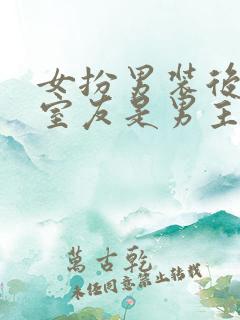 女扮男装後
室友是男主
萬古乾
未经同意禁止转载